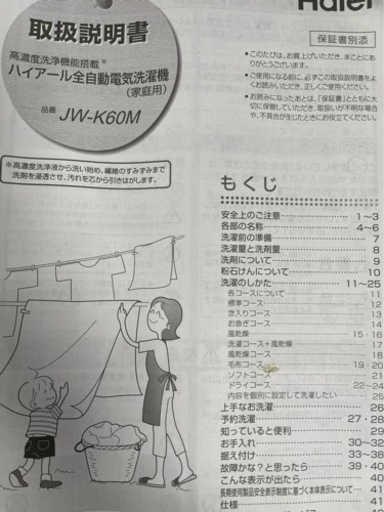 Haier
取扱説明書
高濃度洗浄機能搭載※
ハイアール全自動電気洗濯機
(家庭用)
品番 JW-K60M
※高濃度洗浄液から洗い始め、繊維のすみずみまで
洗剤を浸透させ、汚れを芯から引きはがします。
保証書別添
●このたびは、お買上げいただき、まことにあ
りがとうございます。
●ご使用になる前に、必ずこの取扱説明書をよ
くお読みいただき、正しくご使用ください。
●お読みになったあとは、「保証書」とともに大
切に保管していただき、取扱いが不明な場合
や、不具合が生じたときにお役立てください。
もくじ
安全上のご注意 1～3
各部の名称 4～6
洗濯前の準備 7
洗濯量と洗剤量 8
洗剤について 9
粉石けんについて 10
洗濯のしかた 11～25
各コースについて 11
標準コース 12
念入りコース 13
お急ぎコース 14
風乾燥 15・16
洗濯コース＋風乾燥 17
風乾燥コース 18
毛布コース 19・20
ソフトコース 21
ドライコース 22～24
内容を個別に設定して洗濯したい 25
上手なお洗濯 26
予約洗濯 27・28
知っていると便利 29
お手入れ 30～32
据え付け 33～38
故障かな？と思ったら 39・40
こんな表示が出たら 41
長期使用製品安全表示制度に基づく本体表示について 41
仕様